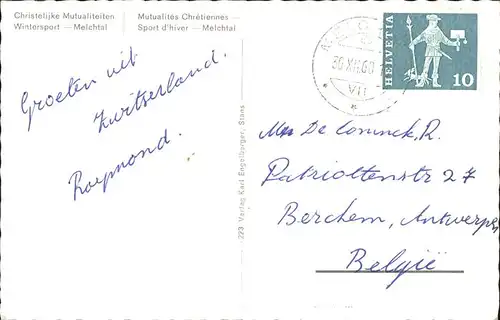 Christelijke Mutualiteiten
Wintersport — Melchtal
Mutualités Chrétiennes —
Sport d'hiver — Melchtal
Groeten uit
Zwitserland.
Raymond.
223 Verlag Karl Engelburger, Stans
VII
HELVETIA
10
De Coninck, R.
Patriottenstr 27
Berchem, Antwerpen
België